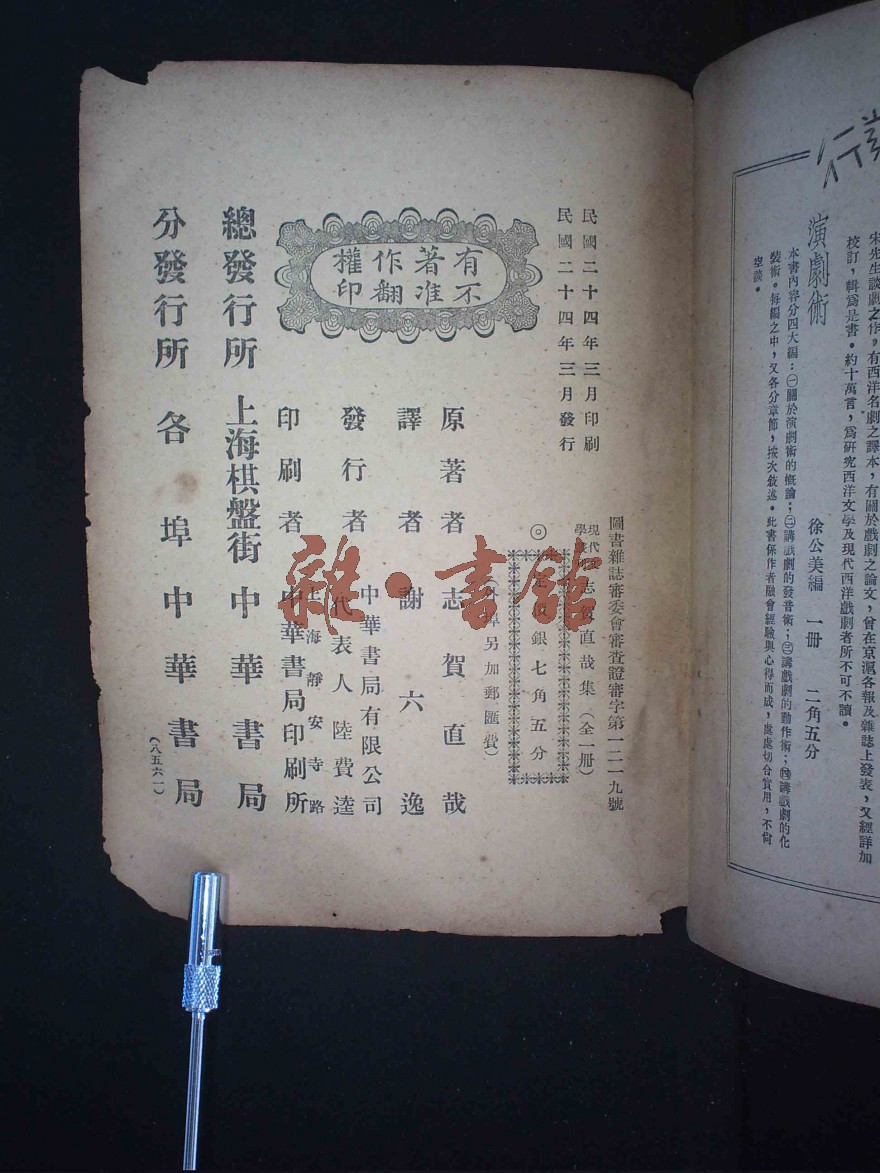 行
宋先生談劇之作，有西洋名劇之譯本，有關於戲劇之論文，曾在京滬各報及雜誌上發表，又經詳加
校訂，輯爲是書。約十萬言，爲研究西洋文學及現代西洋戲劇者所不可不讀。
演劇術
徐公美編 一册 二角五分
本書內容分四大編：㊀關於演劇術的概論；㊁講戲劇的發音術；㊂講戲劇的動作術；㊃講戲劇的化
裝術。每編之中，又各分章節，按次敘述。此書係作者融會經驗與心得而成，處處切合實用，不尙
空談。
圖書雜誌審委會審查證審字第一二一九號
民國二十四年三月印刷
民國二十四年三月發行
現代
學
志賀直哉集（全一册）
◎定 銀七角五分
埠另加郵匯費）
有著作權
不准翻印
原著者 志賀直哉
譯者 謝六逸
發行者 中華書局有限公司
代表人 陸費逵
印刷者 上海靜安寺路
中華書局印刷所
總發行所 上海棋盤街 中華書局
分發行所 各埠中華書局
（八五六一）
雜·書館